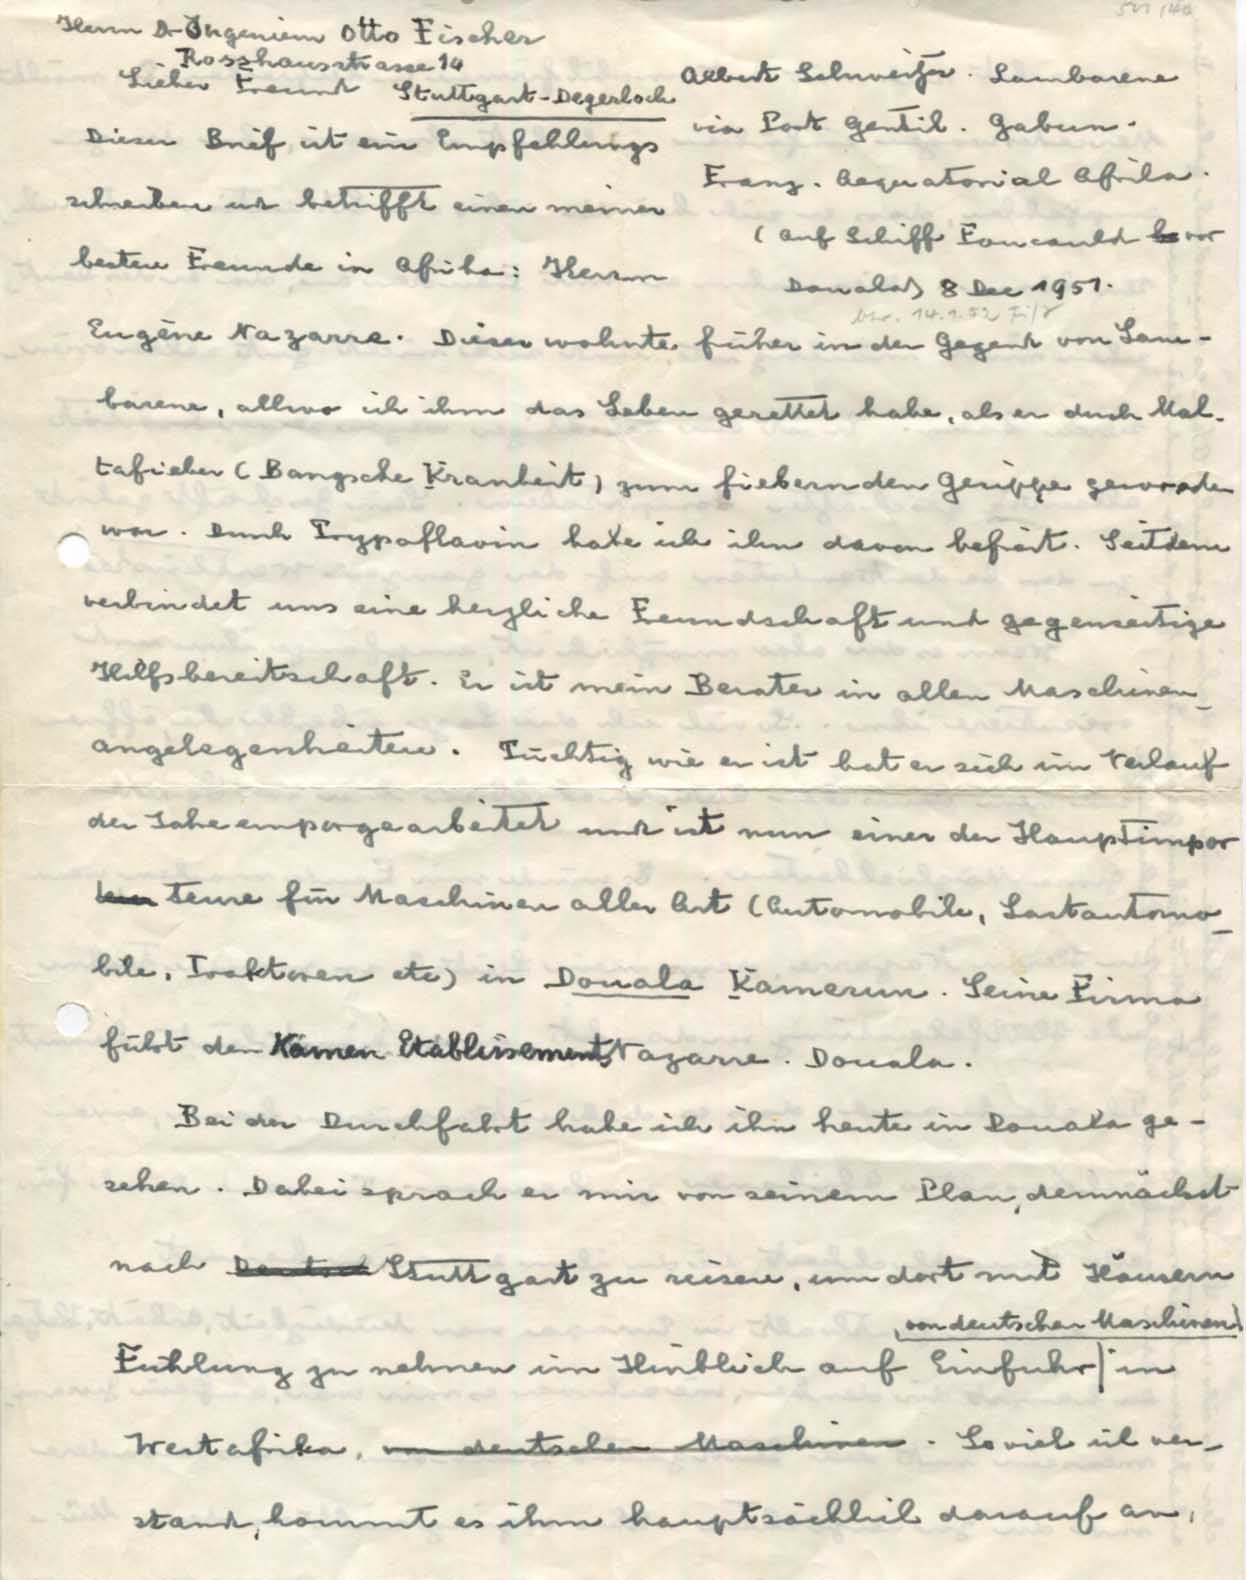 Herrn Dr Ingenieur Otto Fischer
Rosshausstrasse 14
Stuttgart-Degerloch
Albert Schweitzer. Lambarene
via Port Gentil. Gabun.
Franz. Aequatorial Afrika.
(auf Schiff Foucauld vor
Douala) 8 Dec 1951.
14.1.52
Lieber Freund
Dieser Brief ist ein Empfehlungs
schreiben und betrifft einen meiner
besten Freunde in Afrika: Herrn
Eugène Nazarre. Dieser wohnte früher in der Gegend von Lam-
barene, allwo ich ihm das Leben gerettet habe, als er durch Mal-
tafieber (Bangsche Krankheit) zum fiebernden Gerippe geworden
war. Durch Trypaflavin habe ich ihn davon befreit. Seitdem
verbindet uns eine herzliche Freundschaft und gegenseitige
Hilfsbereitschaft. Er ist mein Berater in allen Maschinen-
angelegenheiten. Tüchtig wie er ist hat er sich im Verlauf
der Jahre emporgearbeitet und ist nun einer der Hauptimpor
teure für Maschinen aller Art (Automobile, Lastautomo-
bile, Traktoren etc) in Douala Kamerun. Seine Firma
führt den Namen Etablissements Nazarre. Douala.
Bei der Durchfahrt habe ich ihn heute in Douala ge-
sehen. Dabei sprach er mir von seinem Plan, demnächst
nach Deutsch Stuttgart zu reisen, um dort mit Häusern
von deutschen Maschinen
Fühlung zu nehmen im Hinblick auf Einfuhr in
Westafrika, von deutschen Maschinen. Soviel ich ver-
stand, kommt es ihm hauptsächlich darauf an,